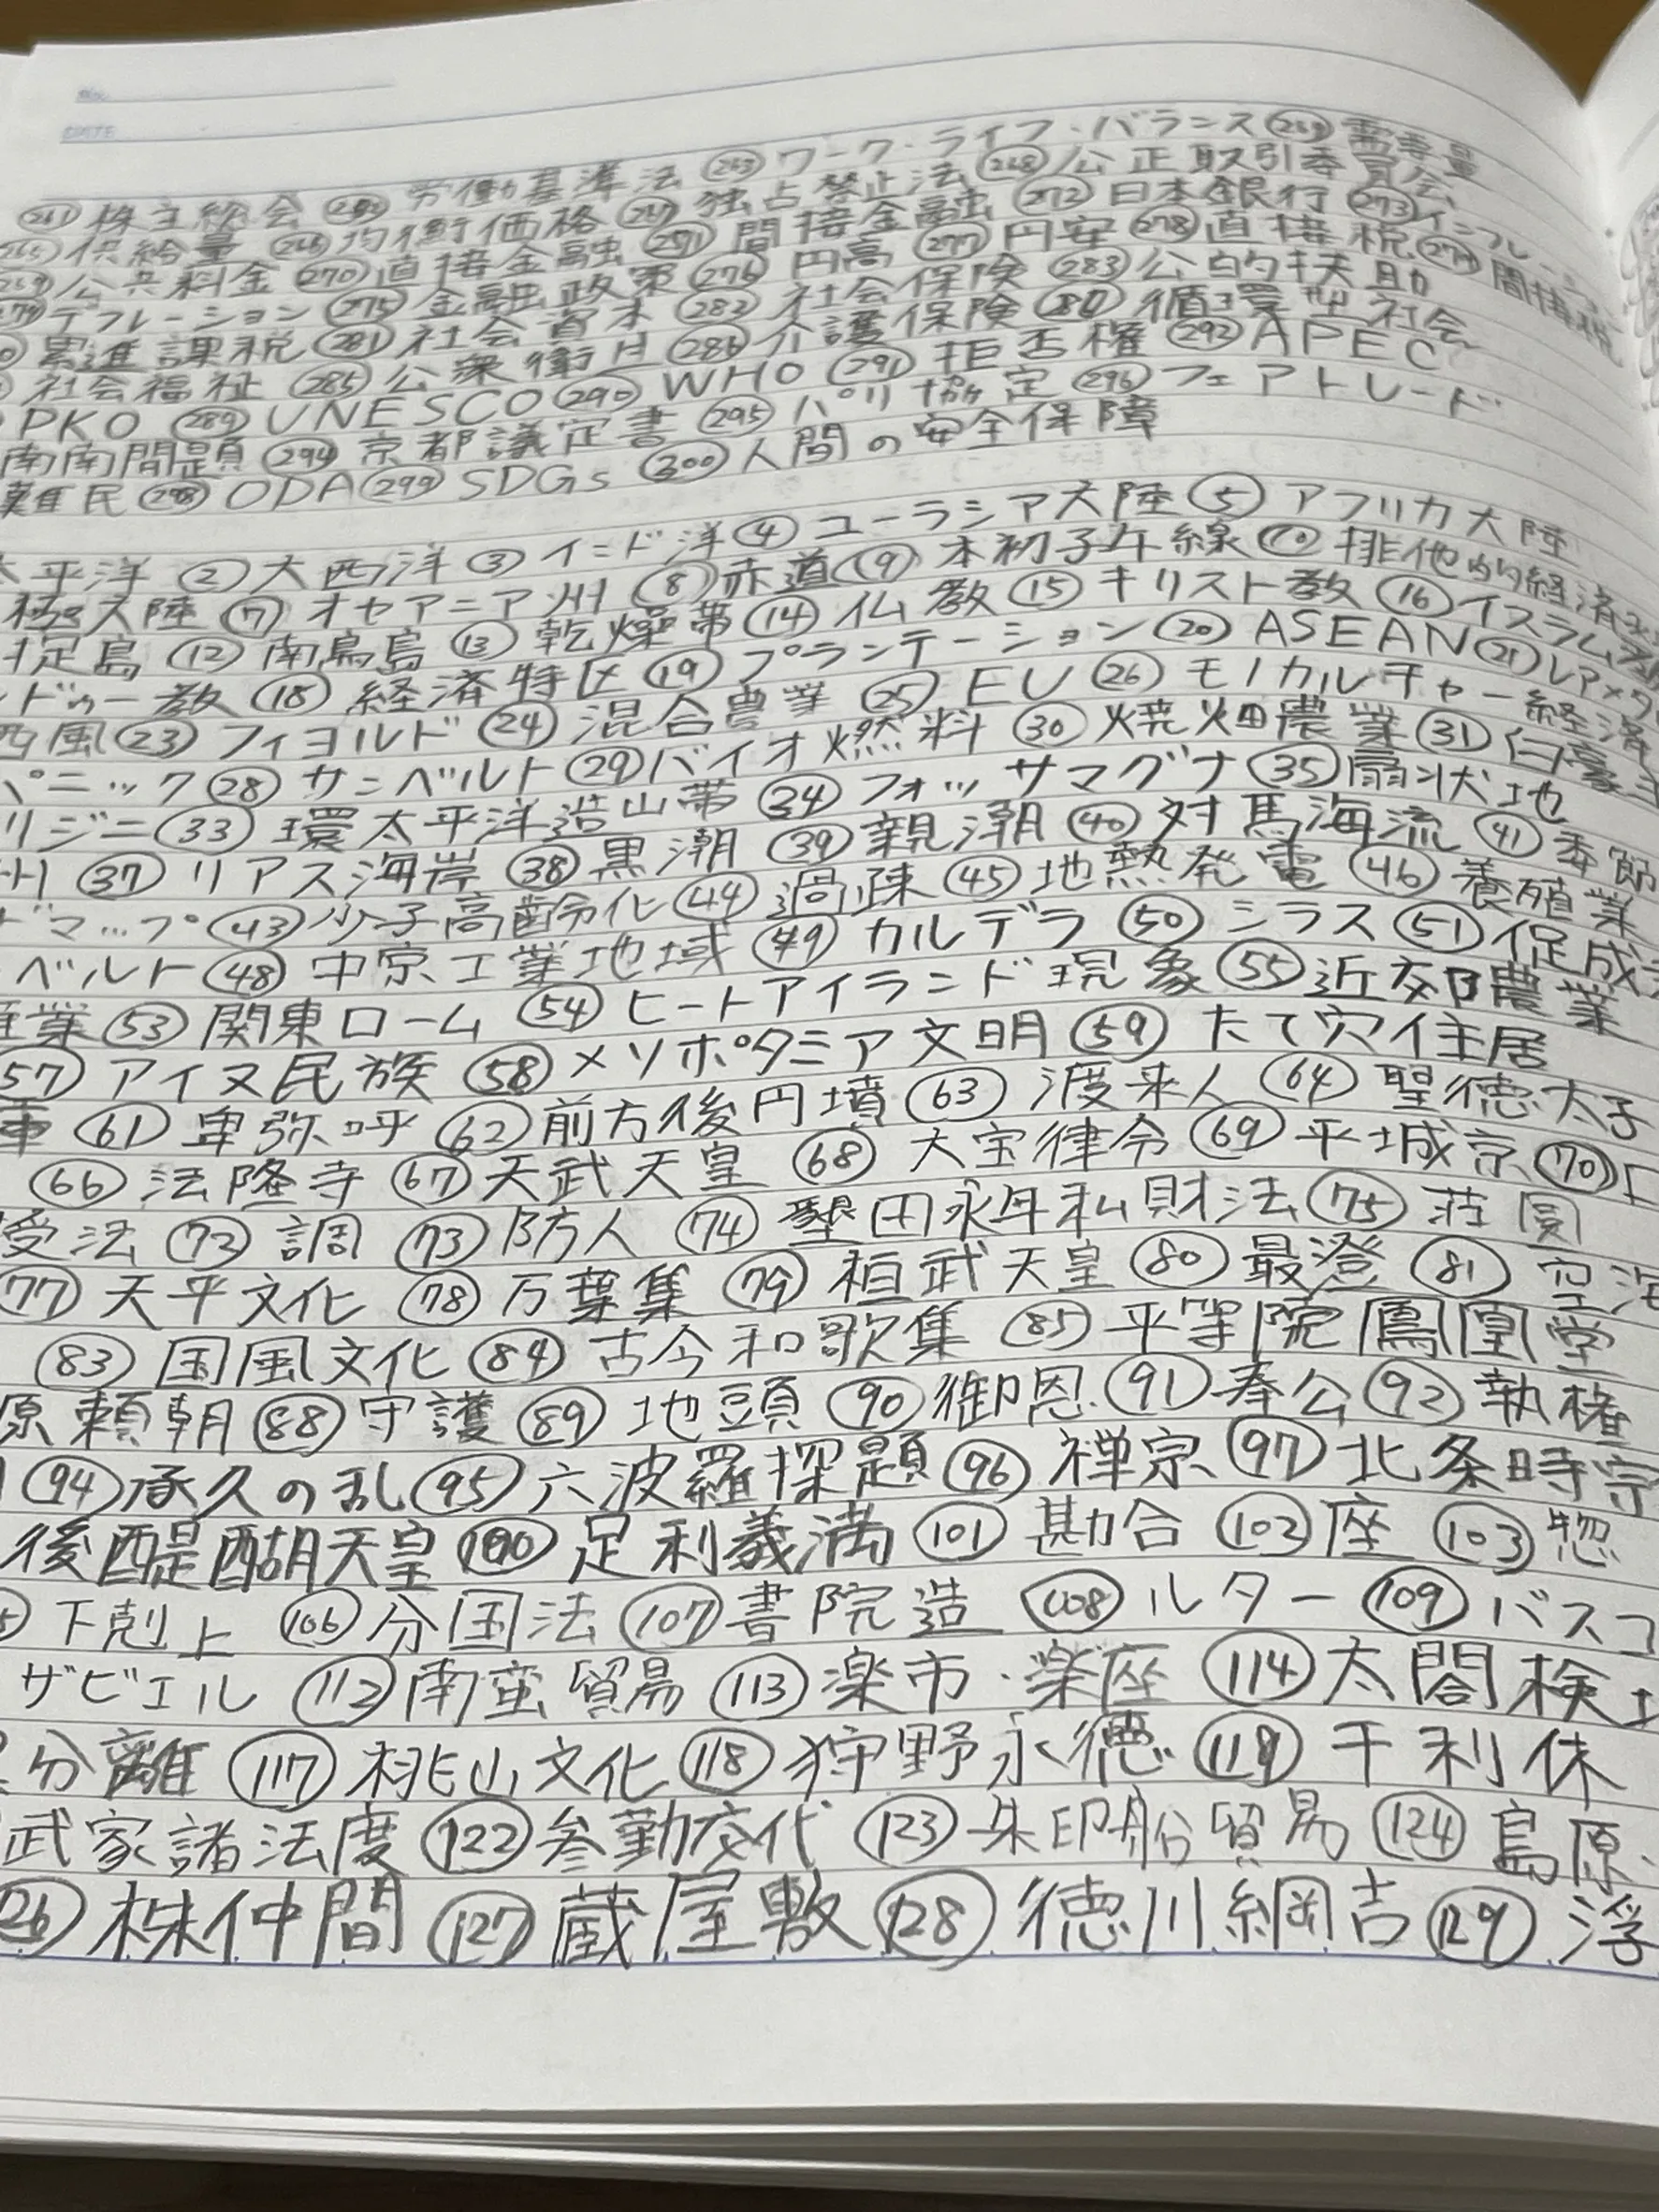 ㉖① 株主総会 労働基準法 ㉖③ ワーク・ライフ・バランス 需要量
供給量 均衡価格 独占禁止法 公正取引委員会
公共料金 (270) 直接金融 (271) 間接金融 (272) 日本銀行 (273) インフレーション
デフレーション (275) 金融政策 (276) 円高 (277) 円安 (278) 直接税 (279) 間接税
累進課税 (281) 社会資本 (282) 社会保険 (283) 公的扶助
社会福祉 (285) 公衆衛生 (286) 介護保険 循環型社会
PKO (289) UNESCO (290) WHO (291) 拒否権 (292) APEC
南南問題 (294) 京都議定書 (295) パリ協定 (296) フェアトレード
難民 (298) ODA (299) SDGs (300) 人間の安全保障
太平洋 ② 大西洋 ③ インド洋 ④ ユーラシア大陸 ⑤ アフリカ大陸
極大陸 ⑦ オセアニア州 ⑧ 赤道 ⑨ 本初子午線 ⑩ 排他的経済
択捉島 ⑫ 南鳥島 ⑬ 乾燥帯 ⑭ 仏教 ⑮ キリスト教 ⑯ イスラム教
ンドゥー教 ⑱ 経済特区 ⑲ プランテーション ⑳ ASEAN ㉑ レアメタル
西風 ㉓ フィヨルド ㉔ 混合農業 ㉕ EU ㉖ モノカルチャー経済
パニック ㉘ サンベルト ㉙ バイオ燃料 ㉚ 焼畑農業 ㉛ 白豪
リジニ ㉝ 環太平洋造山帯 ㉞ フォッサマグナ ㉟ 扇状地
州 ㊲ リアス海岸 ㊳ 黒潮 ㊴ 親潮 ㊵ 対馬海流 ㊶ 季節
ドマップ ㊸ 少子高齢化 ㊹ 過疎 ㊺ 地熱発電 ㊻ 養殖業
ベルト ㊽ 中京工業地域 ㊾ カルデラ ㊿ シラス (51) 促成
産業 (53) 関東ローム (54) ヒートアイランド現象 (55) 近郊農業
(57) アイヌ民族 (58) メソポタミア文明 (59) たて穴住居
(61) 卑弥呼 (62) 前方後円墳 (63) 渡来人 (64) 聖徳太子
(66) 法隆寺 (67) 天武天皇 (68) 大宝律令 (69) 平城京 (70) 口
受法 (72) 調 (73) 防人 (74) 墾田永年私財法 (75) 荘園
(77) 天平文化 (78) 万葉集 (79) 桓武天皇 (80) 最澄 (81) 空海
(83) 国風文化 (84) 古今和歌集 (85) 平等院鳳凰堂
原頼朝 (88) 守護 (89) 地頭 (90) 御恩 (91) 奉公 (92) 執権
(94) 承久の乱 (95) 六波羅探題 (96) 禅宗 (97) 北条時宗
後醍醐天皇 (100) 足利義満 (101) 勘合 (102) 座 (103) 惣
下剋上 (106) 分国法 (107) 書院造 (108) ルター (109) バスコ
ザビエル (112) 南蛮貿易 (113) 楽市・楽座 (114) 太閤検土
分離 (117) 桃山文化 (118) 狩野永徳 (119) 千利休
武家諸法度 (122) 参勤交代 (123) 朱印船貿易 (124) 島原・
(126) 株仲間 (127) 蔵屋敷 (128) 徳川綱吉 (129) 浮